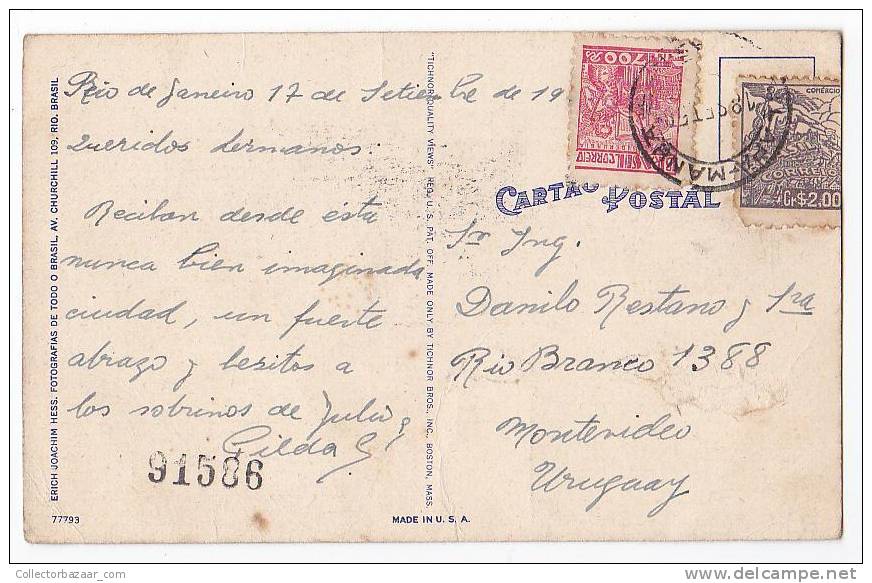 Rio de Janeiro 17 de Setiembre de 19
Queridos hermanos.
Reciban desde ésta
nunca bien imaginada
ciudad, un fuerte
abrazo y besitos a
los sobrinos de Julio y
Gilda G.
91586
77793
ERICH JOACHIM HESS, FOTOGRAFIAS DE TODO O BRASIL, AV. CHURCHILL 109, RIO, BRASIL
"TICHNOR QUALITY VIEWS" REG. U. S. PAT. OFF. MADE ONLY BY TICHNOR BROS., INC., BOSTON, MASS.
MADE IN U. S. A.
CARTAO POSTAL
700
BRASIL CORREIO
COMÉRCIO
BRASIL
CORREIO
Cr$2,00
18 SET
Sr Ing.
Danilo Restano y Sra
Rio Branco 1388
Montevideo
Uruguay
Collectorbazaar_com
delcampe.net